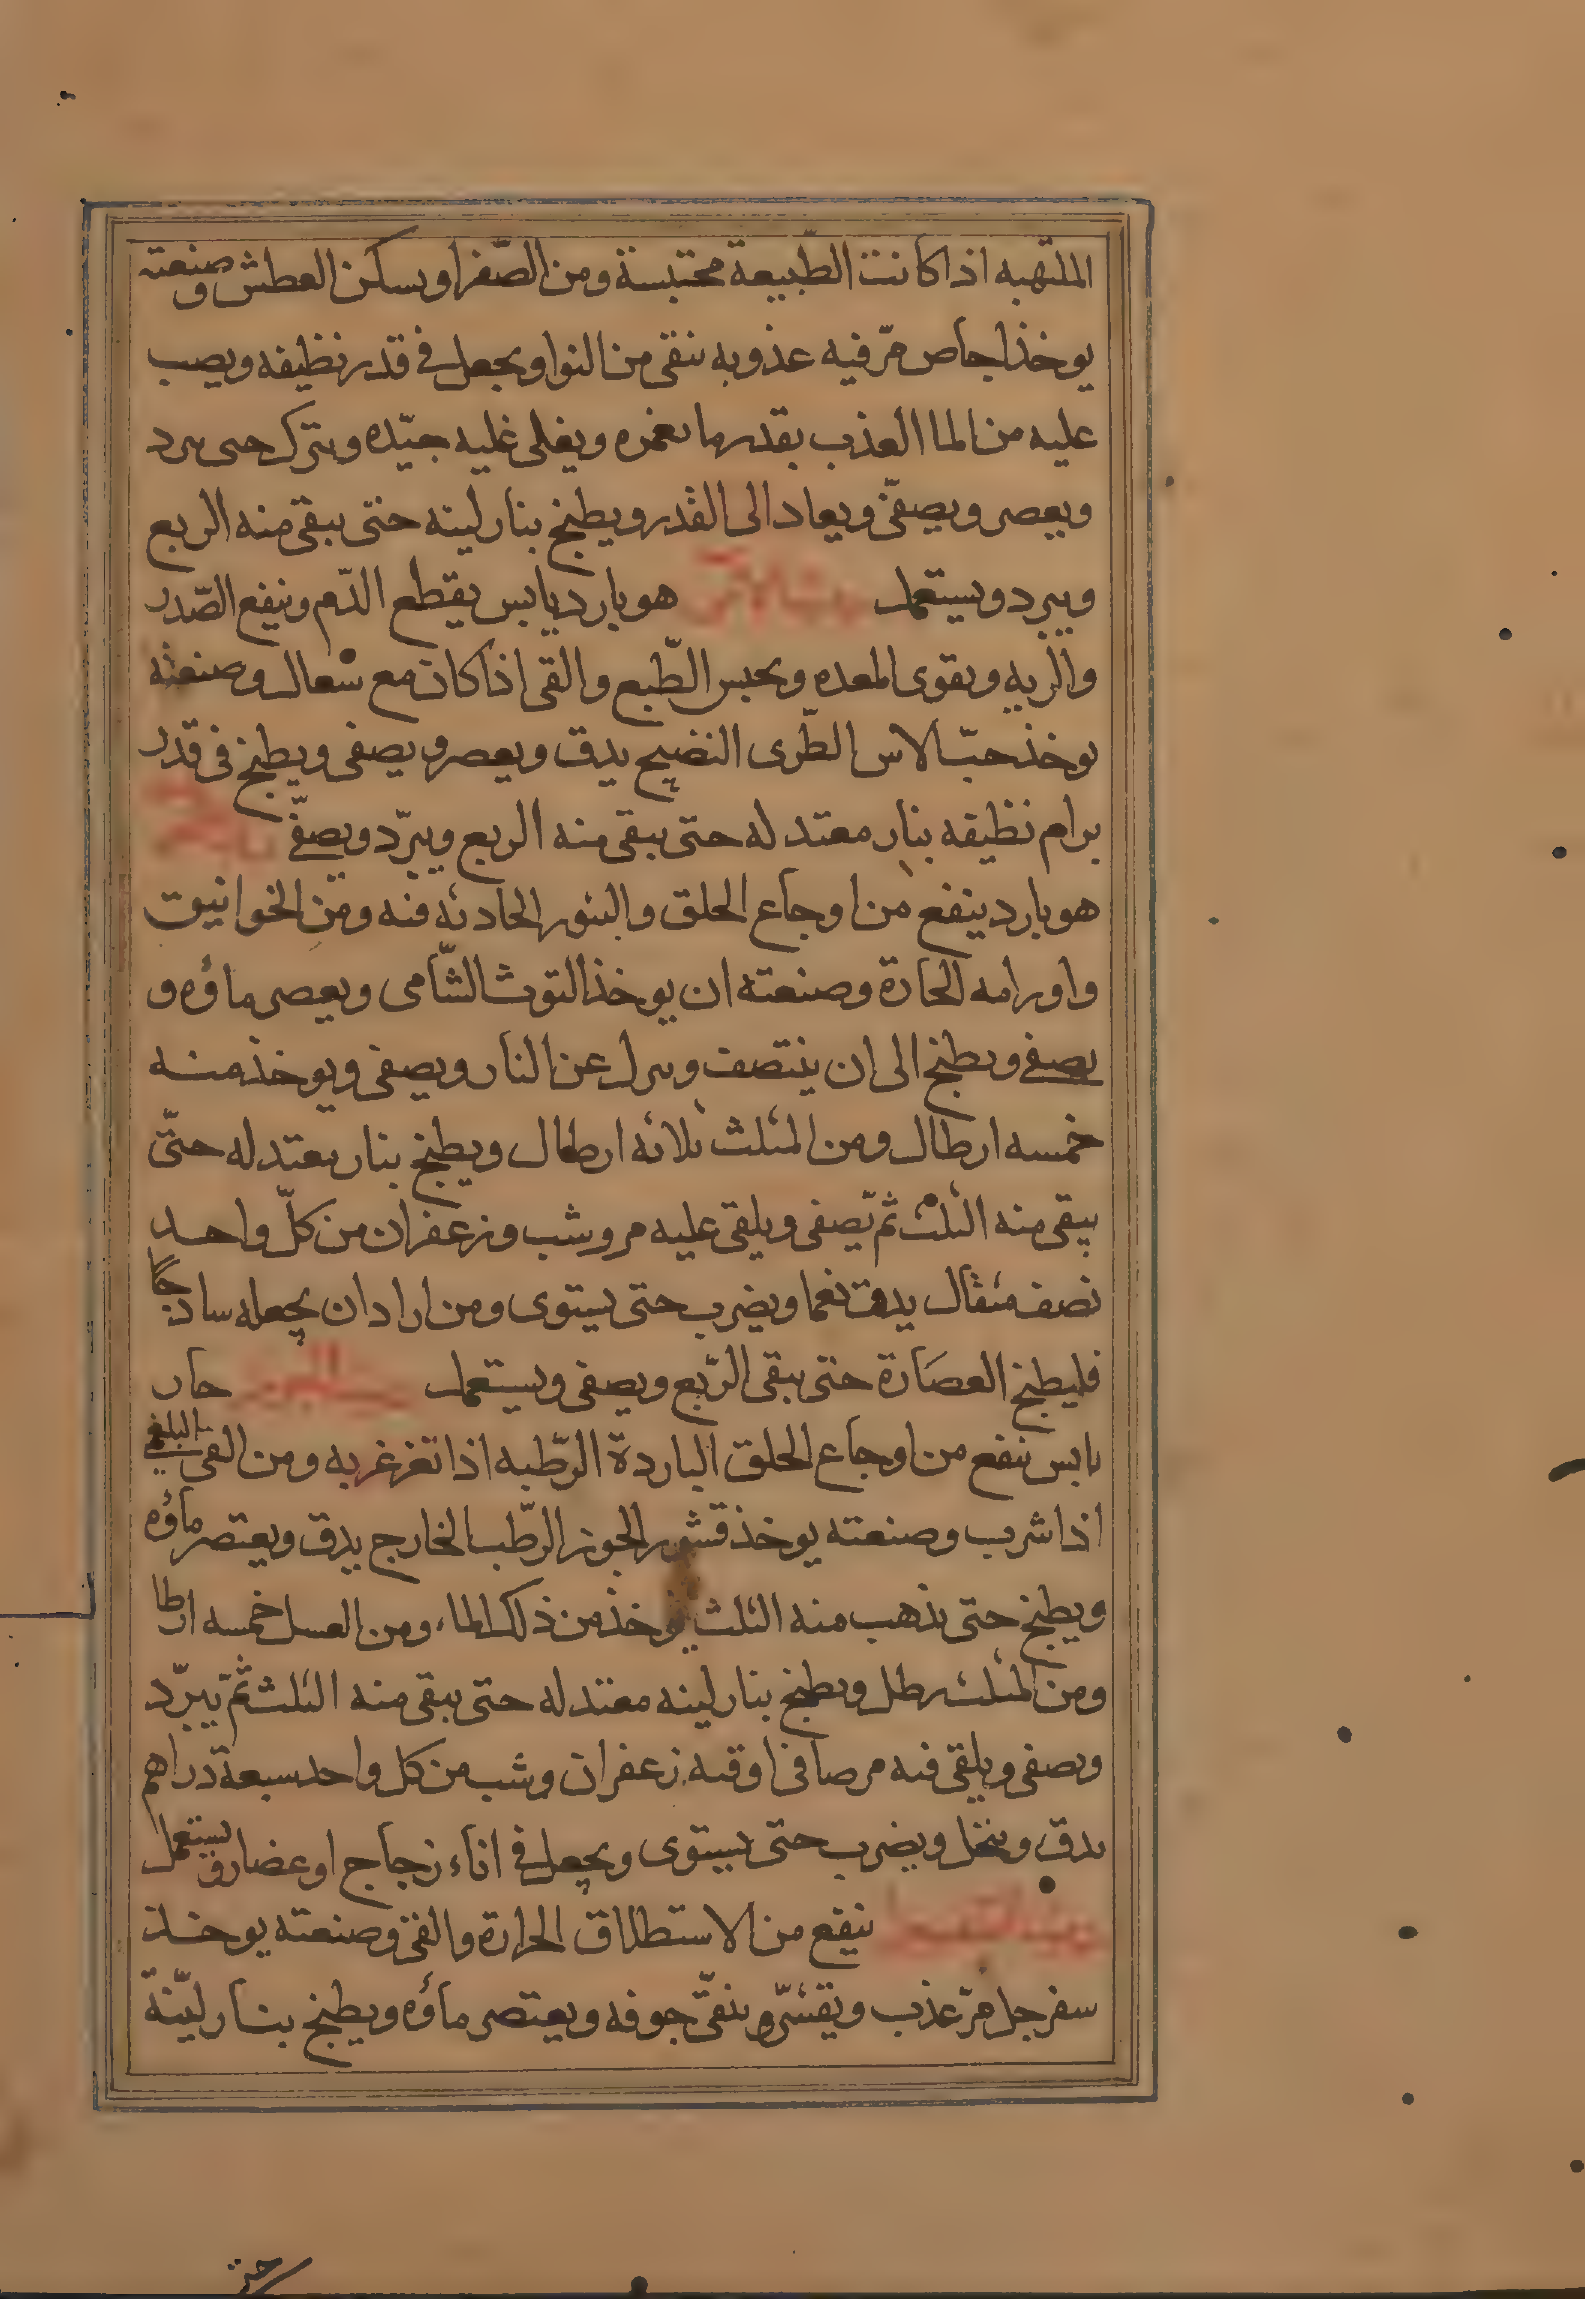 الملتهبه اذا كانت الطّبيعة محتبسة ومن الصّفرا ويسكن العطش وصنعته
يوخذ اجاص مرّ فيه عذوبه ينقى من النوا ويجعل فى قدر نظيفه ويصب
عليه من الما العذب بقدر ما يغمره ويغلى غليه جيّده ويترك حتى يبرد
ويعصر ويصفّى ويعاد الى القدر ويطبخ بنار لينه حتى يبقى منه الربع
ويبرد ويستعمل هو بارد يابس يقطع الدّم وينفع الصّدر
والريه ويقوى المعده ويحبس الطّبع والقى اذا كان مع سعال وصنعته
يوخذ حبّ الاس الطّرى النضيج يدق ويعصر ويصفى ويطبخ فى قدر
برام نظيفه بنار معتدله حتى يبقى منه الربع ويبرّد ويصفّى
هو بارد ينفع من اوجاع الحلق والبثور الحادثه فيه ومن الخوانيق
واورامه الحارة وصنعته ان يوخذ التوث الشّامى ويعصر ماؤه و
يصفى ويطبخ الى ان ينتصف وينزل عن النار ويصفى ويوخذ منه
خمسه ارطال ومن المثلث ثلاثه ارطال ويطبخ بنار معتدله حتّى
يبقى منه الثلث ثمّ يصفى ويلقى عليه مر وشب وزعفران من كلّ واحد
نصف مثقال يدق نعما ويضرب حتى يستوى ومن اراد ان يجعله ساذجا
فليطبخ العصارة حتى يبقى الرّبع ويصفى ويستعمل حار
يابس ينفع من اوجاع الحلق الباردة الرّطبه اذا تغرغر به ومن القى البلغمى
اذا شرب وصنعته يوخذ قشور الجوز الرّطب الخارج يدق ويعتصر ماؤه
ويطبخ حتى يذهب منه الثلث يوخذ من ذلك الماء ومن العسل خمسه ارطا
ومن المثلث رطل ويطبخ بنار لينه معتدله حتى يبقى منه الثلث ثمّ يبرّد
ويصفى ويلقى فيه مر صافى اوقيه زعفران وشب من كل واحد سبعة دراهم
يدق وينخل ويضرب حتى يستوى ويجعل فى اناء زجاج او عضار ويستعمل
ينفع من الاستطلاق الحرارة والقى وصنعته يوخذ
سفرجل مرّ عذب ويقشّر وينقّى جوفه ويعتصر ماؤه ويطبخ بنار ليّنة